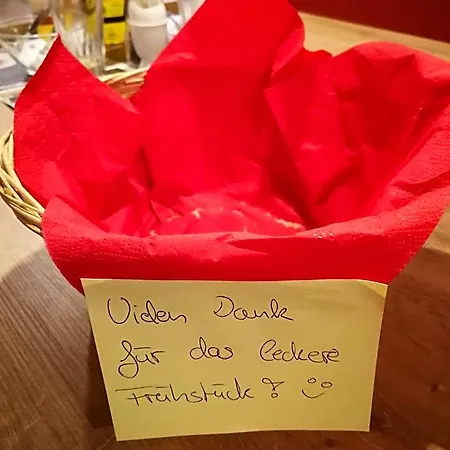 Vielen Dank
für das leckere
Frühstück! ☺